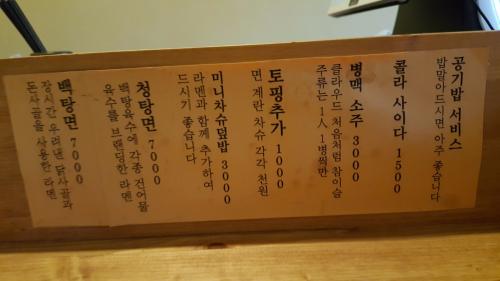 공기밥 서비스
밥말아드시면 아주 좋습니다
콜라 사이다 1500
병맥 소주 3000
클라우드 처음처럼 참이슬
주류는 1人 1병씩만
토핑추가 1000
면 계란 차슈 각각 천원
미니차슈덮밥 3000
라멘과 함께 추가하여
드시기 좋습니다
청탕면 7000
백탕육수에 각종 건어물
육수를 브랜딩한 라멘
백탕면 7000
장시간 우려낸 닭사골과
돈사골을 사용한 라멘